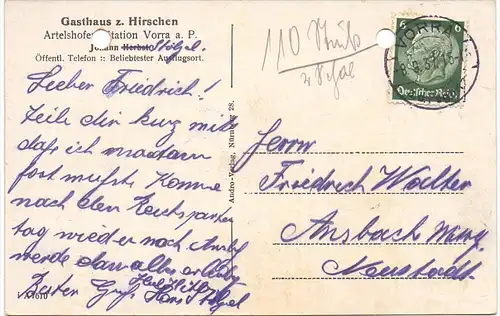 Gasthaus z. Hirschen
Artelshofen Station Vorra a. P.
Johann Herbst Stötzel.
Öffentl. Telefon :: Beliebtester Ausflugsort.
110 Stück
Lieber Friedrich!
Teile dir kurz mit
daß ich
fort mußte. Komme
nach dem Reichsparteitag
wieder nach Ansbach
werde dann alles
Bester Gruß Heil Hitler
Hans
Andro-Verlag, Nürnberg 28.
VORRA
6 6
Deutsches Reich
Herrn
Friedrich Walter
Ansbach
Neustadt